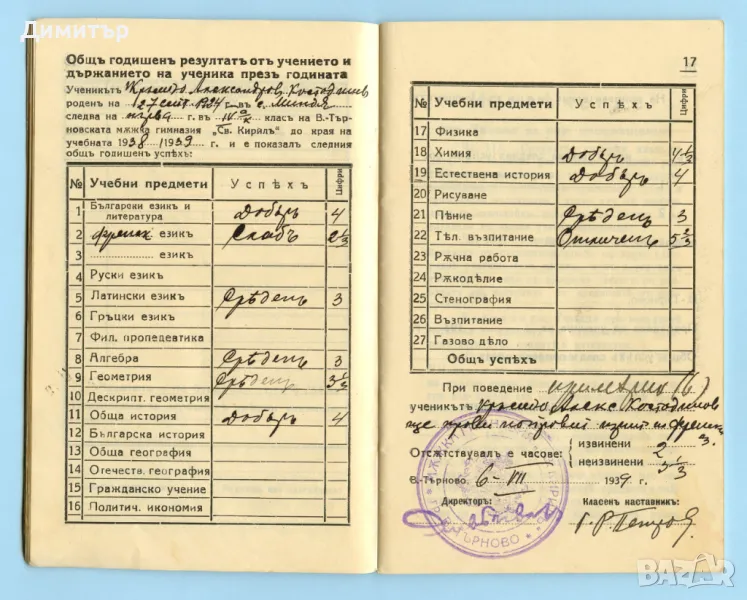 Димитър
Общъ годишенъ резултатъ отъ учението и
държанието на ученика презъ годината
Ученикътъ Кръстю Александровъ Костадинов
роденъ на 27 септ. 1924 г. въ с. Миндя
следва на първа г. въ IV а/к класъ на В.-Тър-
новската мѫжка гимназия „Св. Кирилъ“ до края на
учебната 1938/1939 г. и е показалъ следния
общъ годишенъ успѣхъ:
№ Учебни предмети Успѣхъ Цифри
1 Български езикъ и литература Добъръ 4
2 френск езикъ Слабъ 2 1/3
3 езикъ
4 Руски езикъ
5 Латински езикъ Срѣденъ 3
6 Гръцки езикъ
7 Фил. пропедевтика
8 Алгебра Срѣденъ 3
9 Геометрия Срѣденъ 3 1/3
10 Дескрипт. геометрия
11 Обща история Добъръ 4
12 Българска история
13 Обща география
14 Отечеств. география
15 Гражданско учение
16 Политич. икономия
17
№ Учебни предмети Успѣхъ Цифри
17 Физика
18 Химия Добъръ 4 1/3
19 Естествена история Добъръ 4
20 Рисуване
21 Пѣние Срѣденъ 3
22 Тѣл. възпитание Отличенъ 5 2/3
23 Рѫчна работа
24 Рѫкодѣлие
25 Стенография
26 Възпитание
27 Газово дѣло
Общъ успѣхъ
При поведение примѣрно (6)
ученикътъ Кръстю Алекс. Костадинов
ще прави поправит. изпит по френски
Отсѫтствувалъ е часове: извинени 2
неизвинени 3 1/3
В.-Търново, 6-VII 1939 г.
Директоръ: Класенъ наставникъ:
ТЪРНОВО
bazar